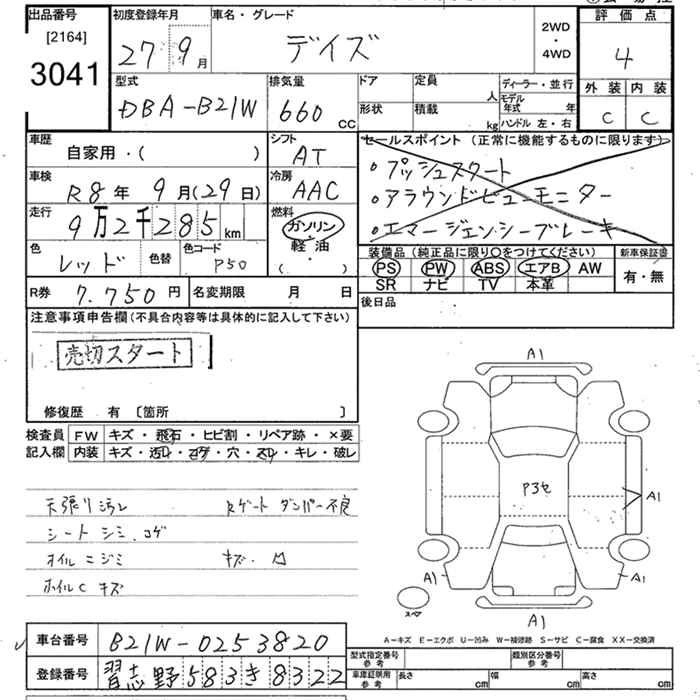 出品番号
[2164]
3041
初度登録年月
27年9月
車名・グレード
デイズ
2WD
・
4WD
評価点
4
外装 内装
C C
型式
DBA-B21W
排気量
660 CC
ドア
形状
定員
人
積載
kg
ディーラー・並行
モデル年式 年
ハンドル 左・右
車歴
自家用・( )
シフト
AT
車検
R8年9月(29日)
冷房
AAC
走行
9万2千285km
燃料
ガソリン
軽油
・
( )
色
レッド
色替
色コード
P50
セールスポイント(正常に機能するものに限ります)
・プッシュスタート
・アラウンドビューモニター
・エマージェンシーブレーキ
装備品(純正品に限り○をつけてください)
PS PW ABS エアB AW
SR ナビ TV 本革
新車保証書
有・無
R券
7.750円
名変期限 月 日
後日品
注意事項申告欄(不具合内容等は具体的に記入して下さい)
売切スタート
修復歴 有 〔箇所 〕
検査員
記入欄
FW キズ・飛石・ヒビ割・リペア跡・×要
内装 キズ・汚レ・コゲ・穴・スレ・キレ・破レ
天張り汚レ
Rゲート ダンパー不良
シート シミ.コゲ
オイルニジミ
キズ.凹
ホイルC キズ
A1
P3セ
A1
A1
A1
A1
スペア
車台番号
B21W-0253820
登録番号
習志野583き8322
A-キズ E-エクボ U-凹み W-補修跡 S-サビ C-腐食 XX-交換済
型式指定番号
参考
類別区分番号
参考
車庫証明用
参考
長さ cm
幅 cm
高さ cm